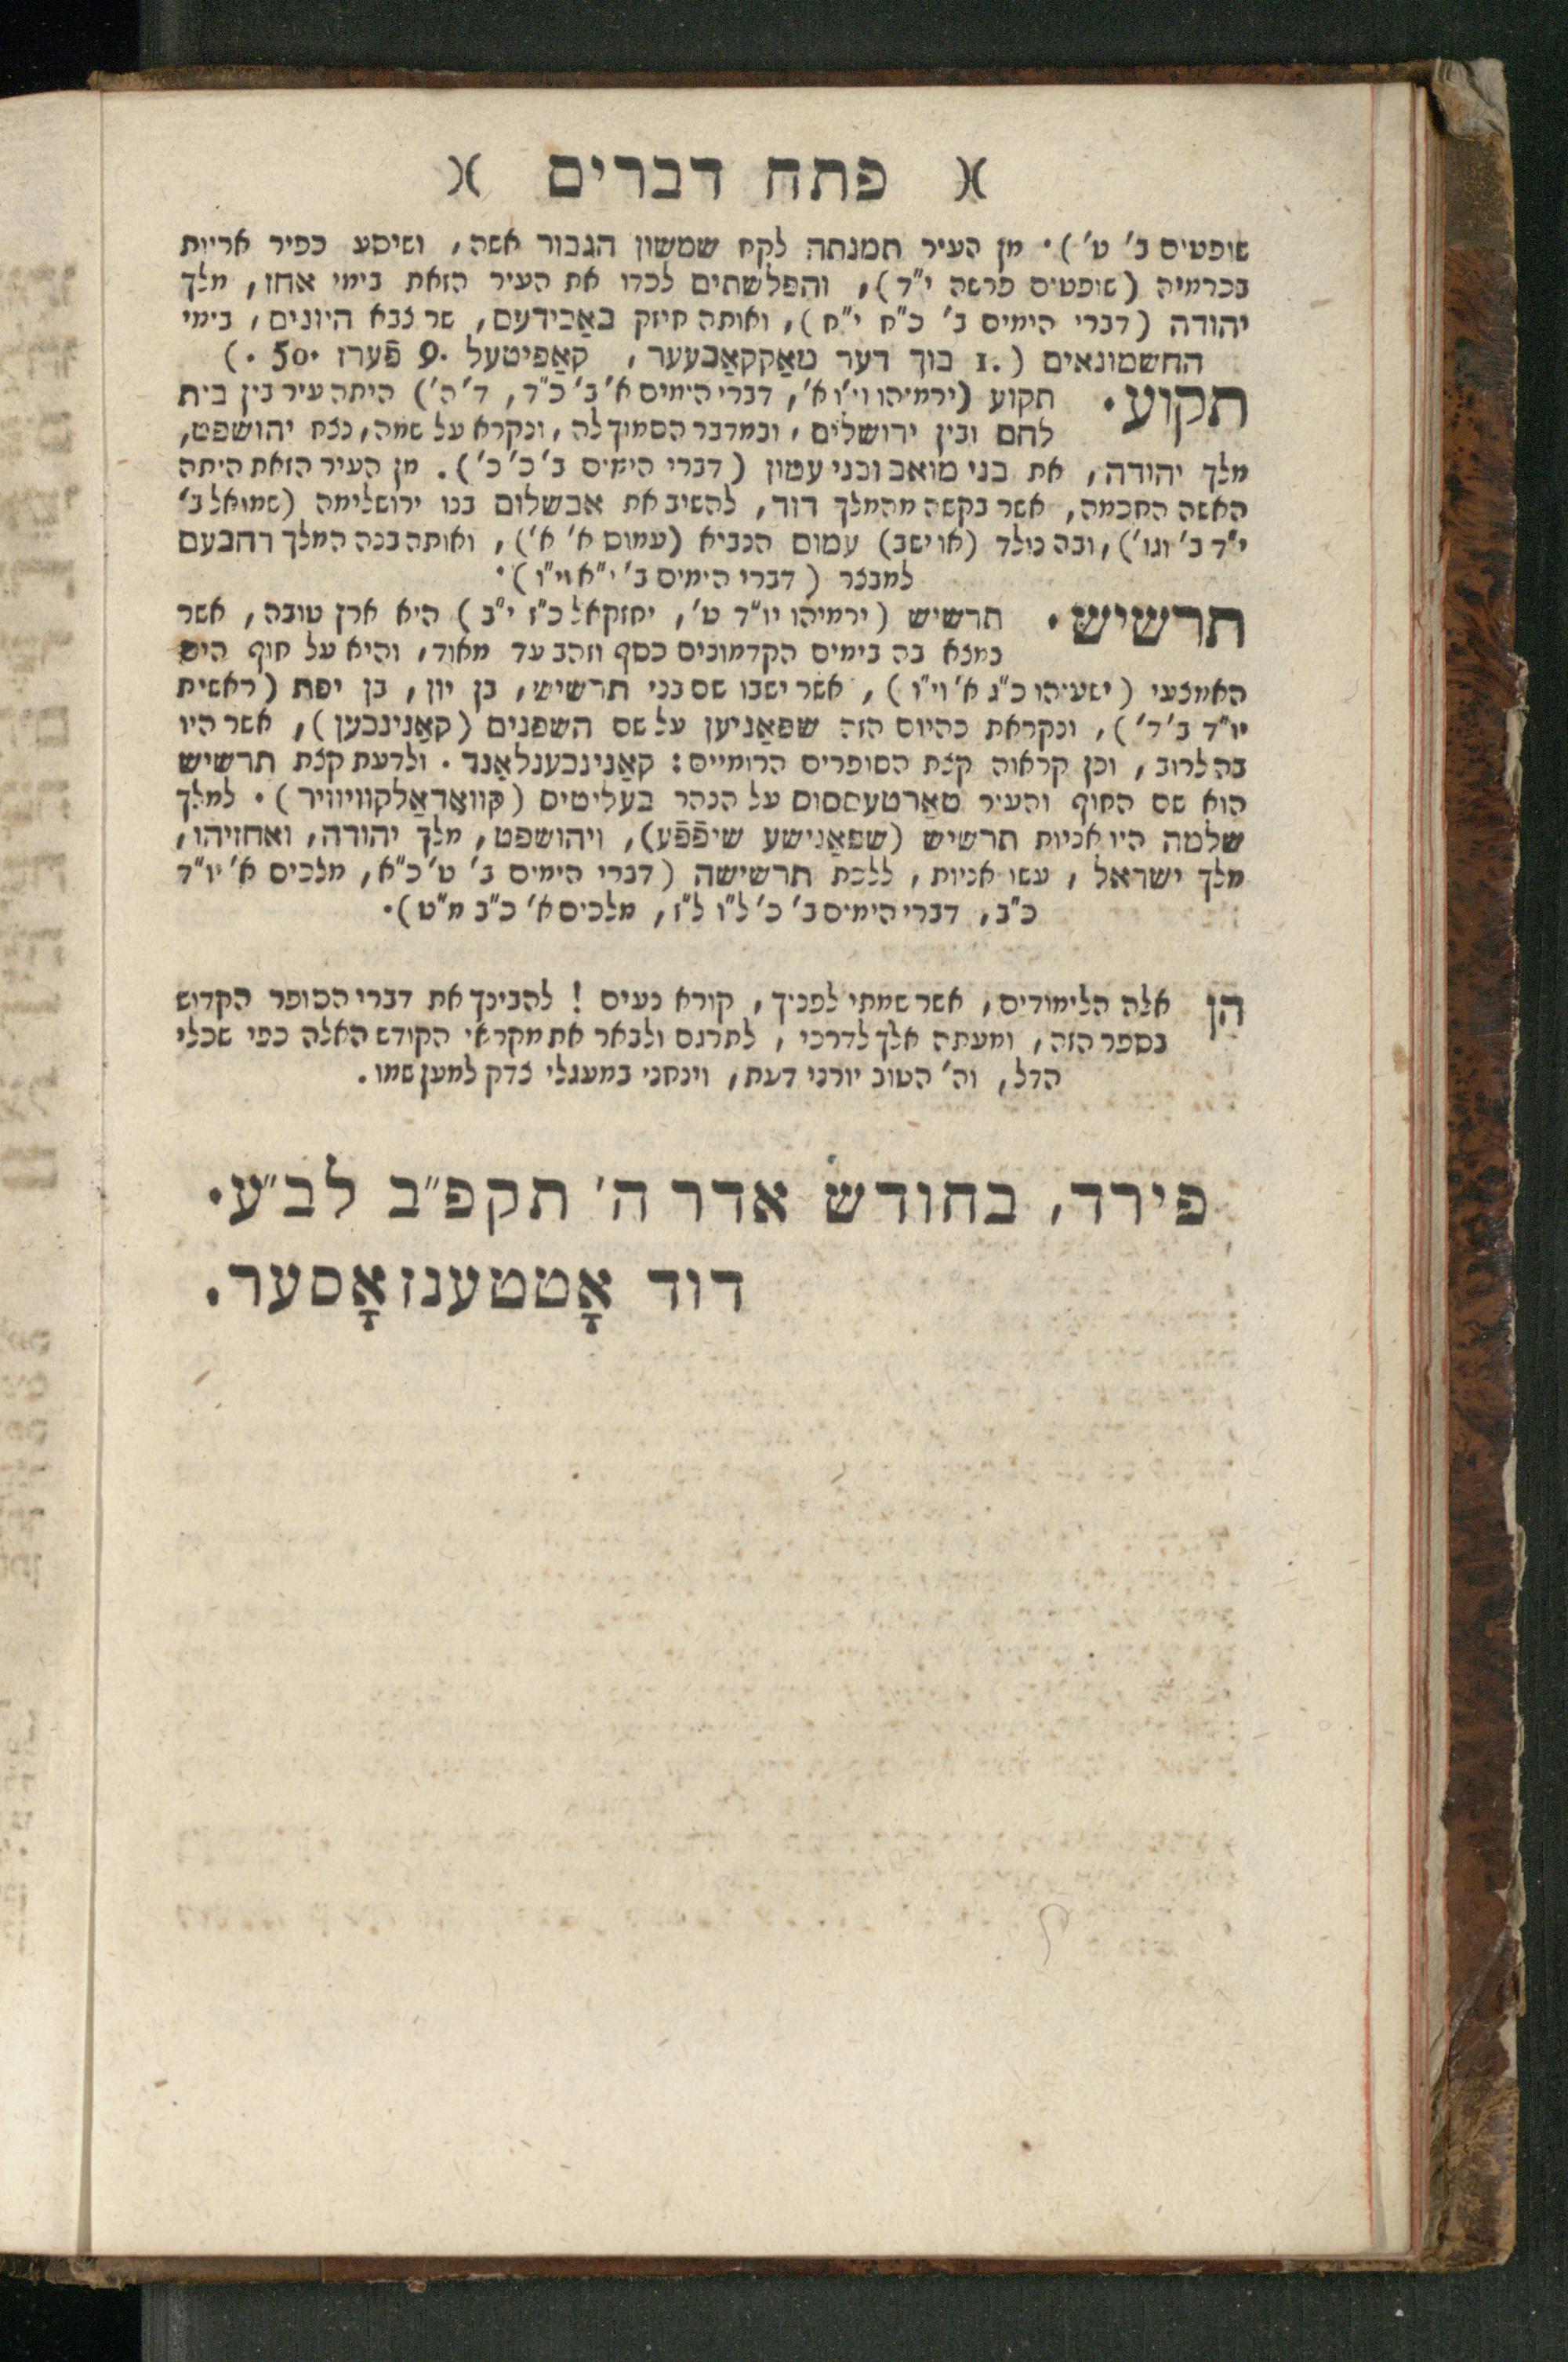 )( פתח דברים )(
שופטים ב׳ ט׳). מן העיר תמנתה לקח שמשון הגבור אשה, ושיסע כפיר אריות
בכרמיה (שופטים פרשה י״ד), והפלשתים לכדו את העיר הזאת בימי אחז, מלך
יהודה (דברי הימים ב׳ כ״ח י״ח), ואותה חיזק באַכידעס, שר צבא היונים, בימי
החשמונאים (.1 בוך דער מאַקקאַבעער, קאַפיטעל .9 פֿערז .50.)
תקוע. תקוע (ירמיהו וי״ו א׳, דברי הימים א׳ ב׳ כ״ד, ד׳ ה׳) היתה עיר בין בית
לחם ובין ירושלים, ובמדבר הסמוך לה, ונקרא על שמה, נצח יהושפט,
מלך יהודה, את בני מואב ובני עמון (דברי הימים ב׳ כ׳ כ׳). מן העיר הזאת היתה
האשה החכמה, אשר בקשה מהמלך דוד, להשיב את אבשלום בנו ירושלימה (שמואל ב׳
י״ד ב׳ וגו׳), ובה נולד (או ישב) עמוס הנביא (עמוס א׳ א׳), ואותה בנה המלך רחבעם
למבצר (דברי הימים ב׳ י״א וי״ו).
תרשיש. תרשיש (ירמיהו יו״ד ט׳, יחזקאל כ״ז י״ב) היא ארץ טובה, אשר
נמצא בה בימים הקדמונים כסף וזהב עד מאוד, והיא על חוף הים
האמצעי (ישעיהו כ״ג א׳ וי״ו), אשר ישבו שם בני תרשיש, בן יון, בן יפת (ראשית
יו״ד ב׳ ד׳), ונקראת כהיום הזה שפאַניען על שם השפנים (קאַנינכען), אשר היו
בה לרוב, וכן קראוה קצת הסופרים הרומיים: קאַנינכענלאַנד. ולדעת קצת תרשיש
הוא שם החוף והעיר טאַרטעססוס על הנהר בעליטים (קוואַדאַלקוויוויר). למלך
שלמה היו אניות תרשיש (שפאַנישע שיפֿפֿע), ויהושפט, מלך יהודה, ואחזיהו,
מלך ישראל, עשו אניות, ללכת תרשישה (דברי הימים ב׳ ט׳ כ״א, מלכים א׳ יו״ד
כ״ב, דברי הימים ב׳ כ׳ ל״ו ל״ז, מלכים א׳ כ״ב מ״ט).
הן אלה הלימודים, אשר שמתי לפניך, קורא נעים! להבינך את דברי הסופר הקדוש
בספר הזה, ומעתה אלך לדרכי, לתרגם ולבאר את מקראי הקודש האלה כפי שכלי
הדל, וה׳ הטוב יורני דעת, וינחני במעגלי צדק למען שמו.
פירד, בחודש אדר ה׳ תקפ״ב לב״ע.
דוד אָטטענזאָסער.